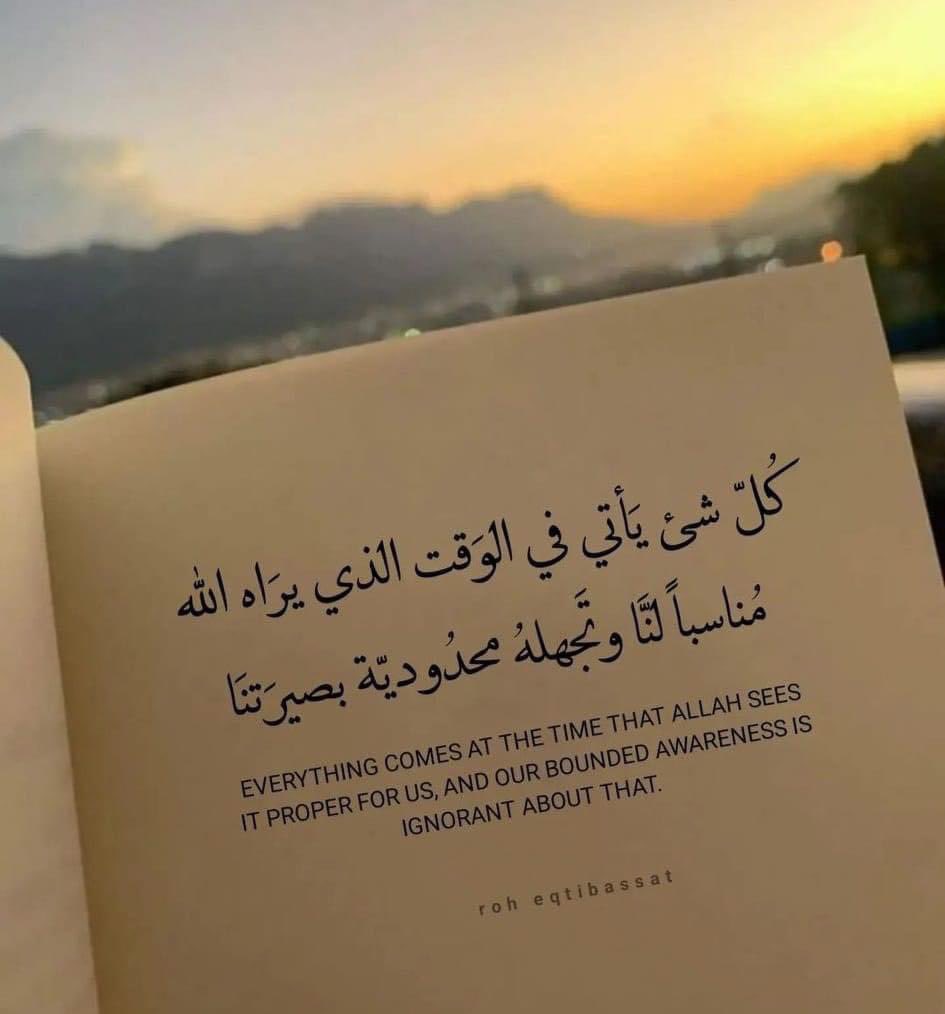 كُلّ شئ يَأتي في الوَقت الذي يرَاه الله
مُناسباً لنَّا وتَجهلهُ محدُوديّة بصيرَتنَا
EVERYTHING COMES AT THE TIME THAT ALLAH SEES
IT PROPER FOR US, AND OUR BOUNDED AWARENESS IS
IGNORANT ABOUT THAT.
roh eqtibassat